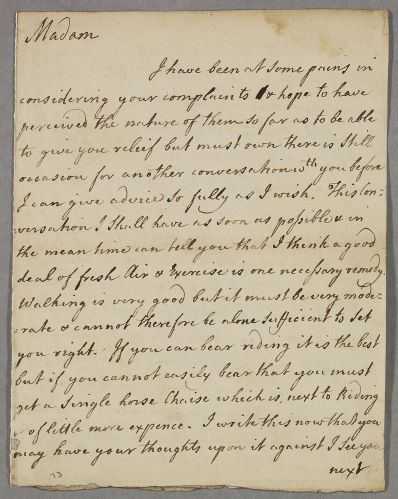 Madam
I have been at some pains in
considering your complaints & hope to have
perceived the nature of them so far as to be able
to give you relief but must own there is still
occasion for another conversation wth you before
I can give advice so fully as I wish. This Con-
versation I shall have as soon as possible & in
the mean time can tell you that I think a good
deal of fresh Air & Exercise is one necessary remedy.
Walking is very good but it must be very mode-
-rate & cannot therefore be alone sufficient to set
you right. If you can bear riding it is the best
but if you cannot easily bear that you must
get a Single horse Chaise which is next to Riding
& of little more expence. I write this now that you
may have your thoughts upon it against I see you
next
73